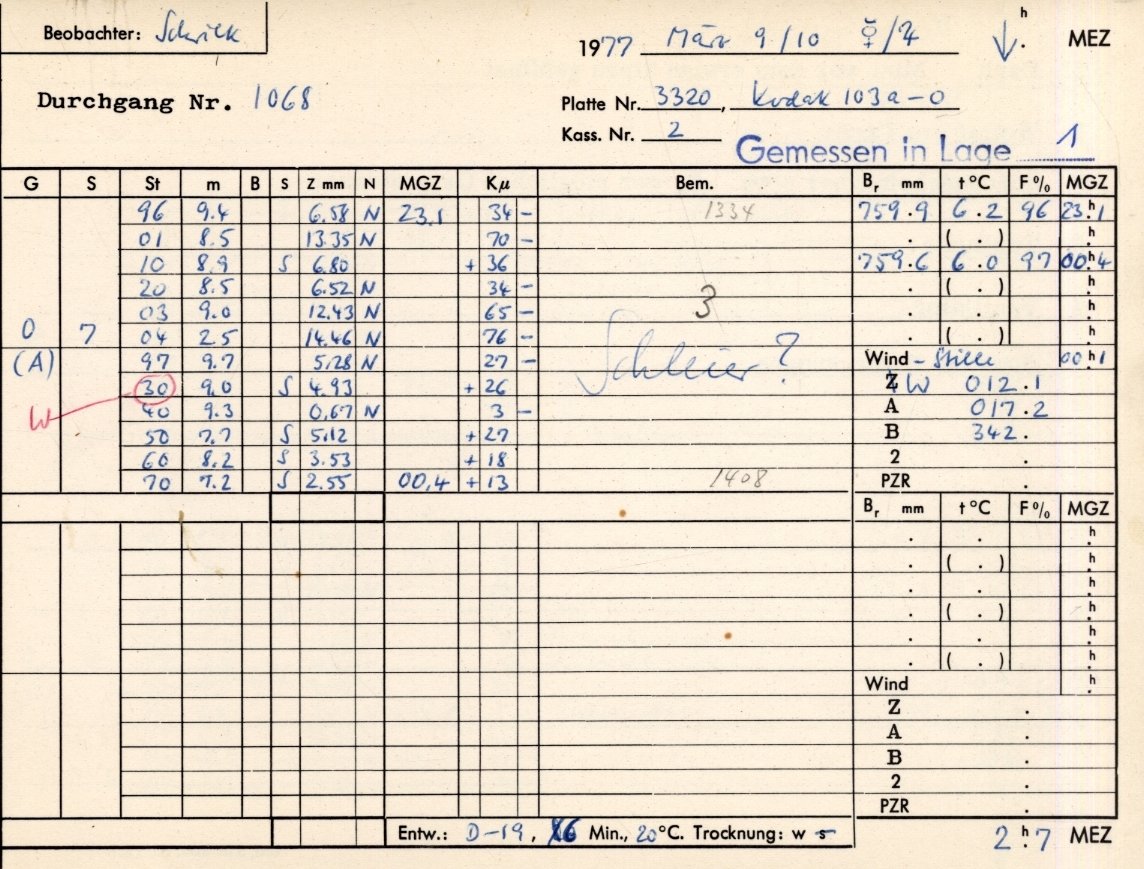 Beobachter: Schrick
1977 März 9/10 ☿/♃ h . MEZ
Durchgang Nr. 1068
Platte Nr. 3320, Kodak 103a-O
Kass. Nr. 2
Gemessen in Lage 1
G S St m B S Z mm N MGZ Kμ Bem. Br mm t °C F% MGZ
96 9.4 6.58 N 23.1 34 - 1334 759.9 6.2 96 23h.1
01 8.5 13.35 N 70 - . ( . ) h.
10 8.9 S 6.80 + 36 759.6 6.0 97 00h.4
20 8.5 6.52 N 34 - . ( . ) h.
03 9.0 12.43 N 65 - 3 . . h.
0 7 04 2.5 14.46 N 76 - . ( . ) h.
(A) 97 9.7 5.28 N 27 - Schleier? Wind - Stille 00h.1
30 9.0 S 4.93 + 26 Z W 012.1
W 40 9.3 0.67 N 3 - A 017.2
50 7.7 S 5.12 + 27 B 342.
60 8.2 S 3.53 + 18 2 .
70 7.2 S 2.55 00.4 + 13 1408 PZR .
Br mm t °C F% MGZ
. . h.
. ( . ) h.
. . h.
. ( . ) h.
. . h.
. ( . ) h.
Wind h.
Z .
A .
B .
2 .
PZR .
Entw.: D-19, 6 Min., 20°C. Trocknung: w s
2h.7 MEZ